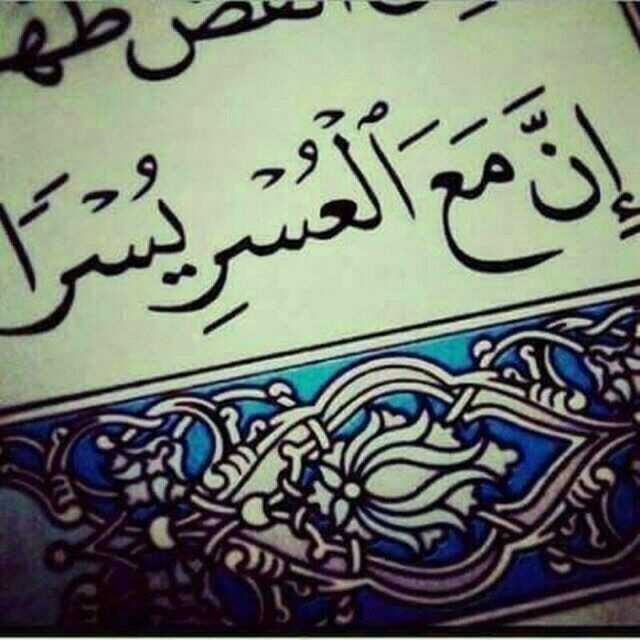 أنقض
إِنَّ مَعَ ٱلْعُسْرِ يُسْرًا